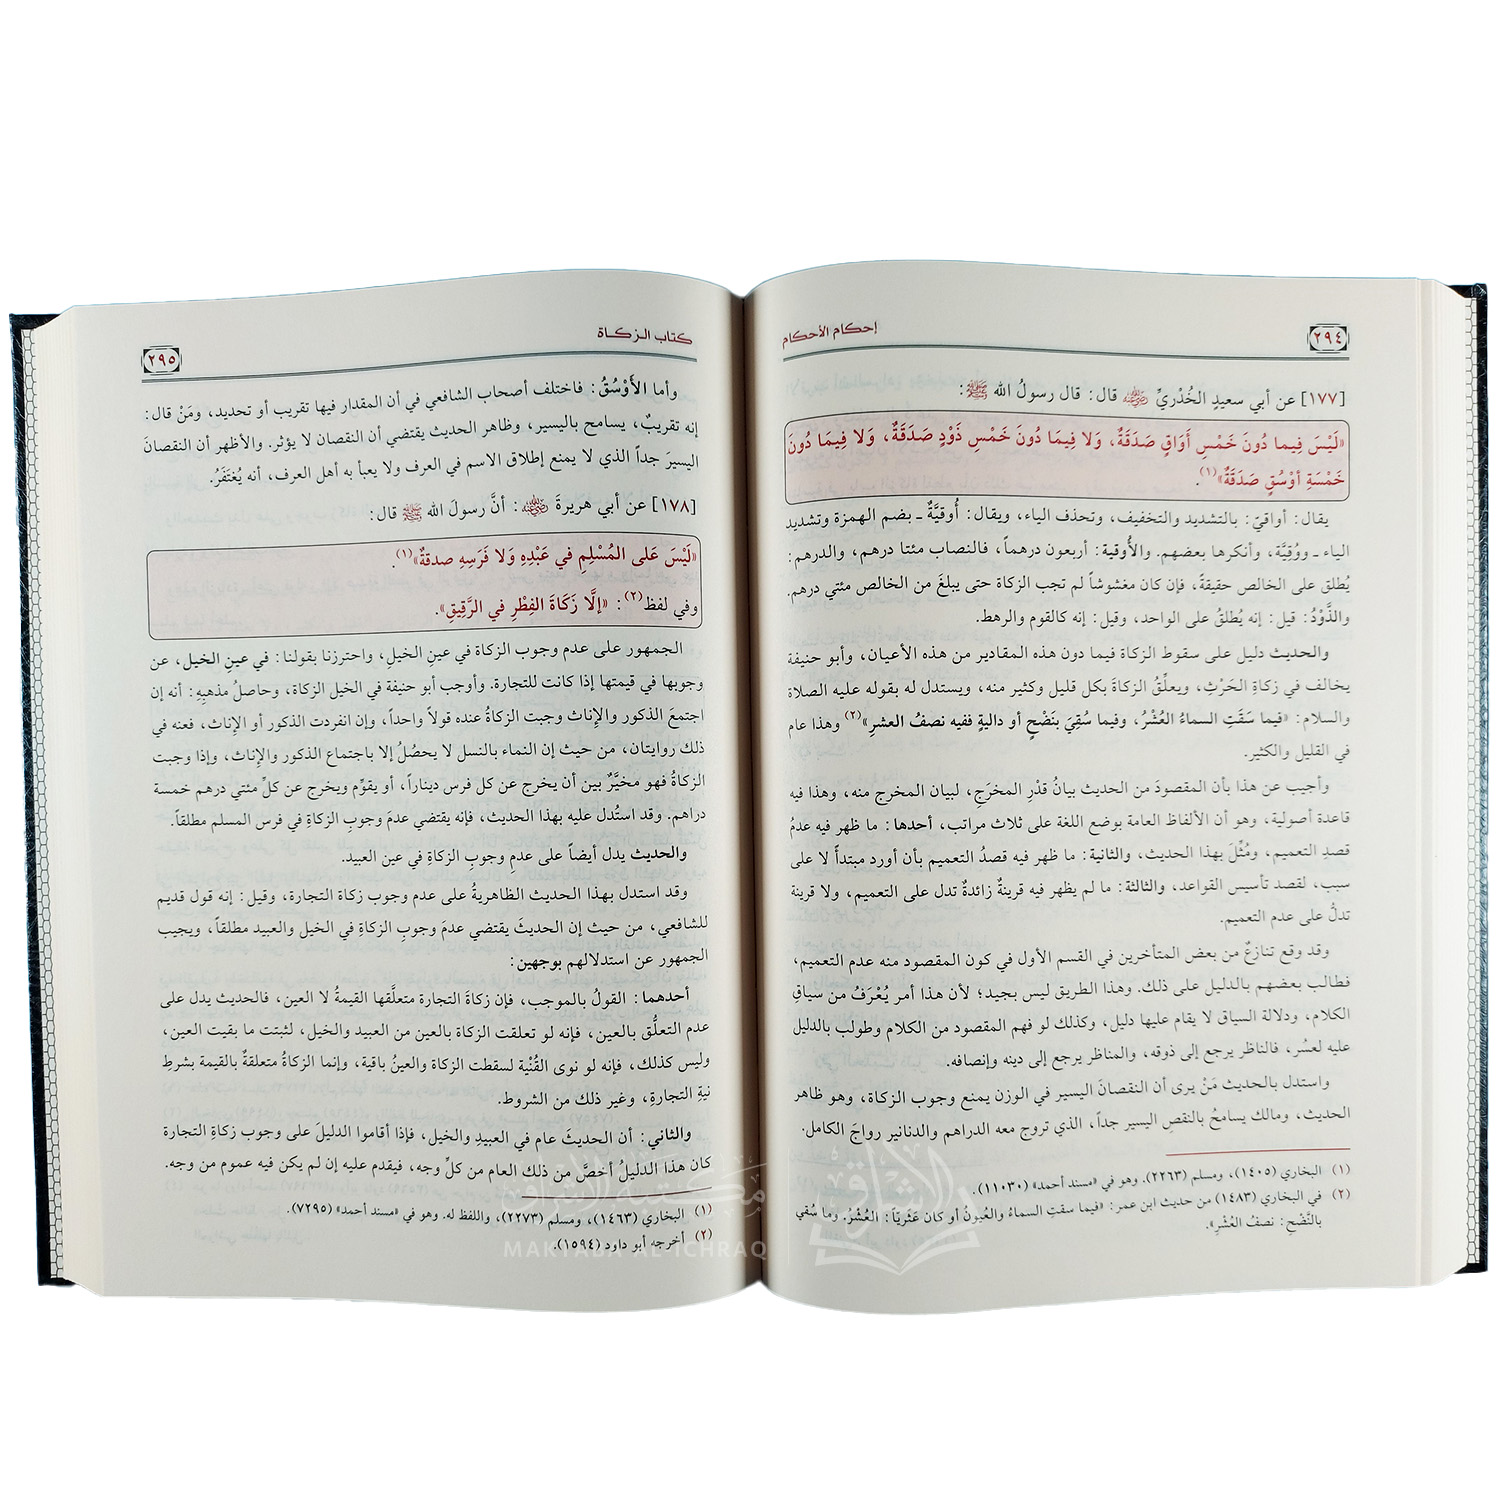 ٢٩٤
إحكام الأحكام
[١٧٧] عن أبي سعيدٍ الخُدْريِّ ﷺ قال: قال رسولُ الله ﷺ:
«لَيْسَ فِيما دُونَ خَمْسِ أَوَاقٍ صَدَقَةٌ، وَلا فِيمَا دُونَ خَمْسِ ذَوْدٍ صَدَقَةٌ، وَلا فِيمَا دُونَ
خَمْسَةِ أوْسُقٍ صَدَقَةٌ»(١).
يقال: أواقيّ: بالتشديد والتخفيف، وتحذف الياء، ويقال: أُوقيَّةٌ ـ بضم الهمزة وتشديد
الياء ـ ووُقِيَّة، وأنكرها بعضهم. والأُوقية: أربعون درهماً، فالنصاب مئتا درهم، والدرهم:
يُطلق على الخالص حقيقةً، فإن كان مغشوشاً لم تجب الزكاة حتى يبلغَ من الخالص مئتي درهم.
والذَّوْدُ: قيل: إنه يُطلقُ على الواحد، وقيل: إنه كالقوم والرهط.
والحديث دليل على سقوط الزكاة فيما دون هذه المقادير من هذه الأعيان، وأبو حنيفة
يخالف في زكاةِ الحَرْثِ، ويعلِّقُ الزكاةَ بكل قليل وكثير منه، ويستدل له بقوله عليه الصلاة
والسلام: «فيما سَقَتِ السماءُ العُشْرُ، وفيما سُقِيَ بنَضْحٍ أو داليةٍ ففيه نصفُ العشرِ»(٢) وهذا عام
في القليل والكثير.
وأجيب عن هذا بأن المقصودَ من الحديث بيانُ قدْرِ المخرَجِ، لبيان المخرج منه، وهذا فيه
قاعدة أصولية، وهو أن الألفاظ العامة بوضع اللغة على ثلاث مراتب، أحدها: ما ظهر فيه عدمُ
قصدِ التعميم، ومُثِّلَ بهذا الحديث، والثانية: ما ظهر فيه قصدُ التعميم بأن أورد مبتدأً لا على
سبب، لقصد تأسيس القواعد، والثالثة: ما لم يظهر فيه قرينةٌ زائدةٌ تدل على التعميم، ولا قرينة
تدلُّ على عدم التعميم.
وقد وقع تنازعٌ من بعض المتأخرين في القسم الأول في كون المقصود منه عدم التعميم،
فطالب بعضهم بالدليل على ذلك. وهذا الطريق ليس بجيد؛ لأن هذا أمر يُعْرَفُ من سياقِ
الكلام، ودلالة السياق لا يقام عليها دليل، وكذلك لو فهم المقصود من الكلام وطولب بالدليل
عليه لعسُر، فالناظر يرجع إلى ذوقه، والمناظر يرجع إلى دينه وإنصافه.
واستدل بالحديث مَنْ يرى أن النقصانَ اليسير في الوزن يمنع وجوب الزكاة، وهو ظاهر
الحديث، ومالك يسامحُ بالنقصِ اليسير جداً، الذي تروج معه الدراهم والدنانير رواجَ الكامل.
(١) البخاري (١٤٠٥)، ومسلم (٢٢٦٣). وهو في «مسند أحمد» (١١٠٣٠).
(٢) في البخاري (١٤٨٣) من حديث ابن عمر: «فيما سقتِ السماءُ والعُيونُ أو كان عَثَرِيّاً: العُشْرُ. وما سُقي
بالنَّضْحِ: نصفُ العُشْرِ».
كتاب الزكاة
٢٩٥
وأما الأَوْسُقُ: فاختلف أصحاب الشافعي في أن المقدار فيها تقريب أو تحديد، ومَنْ قال:
إنه تقريبٌ، يسامح باليسير، وظاهر الحديث يقتضي أن النقصان لا يؤثر. والأظهر أن النقصانَ
اليسيرَ جداً الذي لا يمنع إطلاق الاسم في العرف ولا يعبأ به أهل العرف، أنه يُغتَفَرُ.
[١٧٨] عن أبي هريرةَ ﷺ: أنَّ رسولَ الله ﷺ قال:
«لَيْسَ عَلى المُسْلِمِ في عَبْدِهِ وَلا فَرَسِهِ صدقةٌ»(١).
وفي لفظ(٢): «إلَّا زَكَاةَ الفِطْرِ في الرَّقِيقِ».
الجمهور على عدم وجوب الزكاة في عينِ الخيلِ، واحترزنا بقولنا: في عينِ الخيل، عن
وجوبها في قيمتها إذا كانت للتجارة. وأوجب أبو حنيفة في الخيل الزكاة، وحاصلُ مذهبِهِ: أنه إن
اجتمعَ الذكور والإناث وجبت الزكاةُ عنده قولاً واحداً، وإن انفردت الذكور أو الإناث، فعنه في
ذلك روايتان، من حيث إن النماء بالنسل لا يحصُلُ إلا باجتماع الذكور والإناث، وإذا وجبت
الزكاةُ فهو مخيَّرٌ بين أن يخرج عن كل فرس ديناراً، أو يقوِّم ويخرج عن كلِّ مئتي درهم خمسة
دراهم. وقد استُدل عليه بهذا الحديث، فإنه يقتضي عدمَ وجوبِ الزكاةِ في فرس المسلم مطلقاً.
والحديث يدل أيضاً على عدمِ وجوبِ الزكاةِ في عين العبيد.
وقد استدل بهذا الحديث الظاهريةُ على عدم وجوب زكاة التجارة، وقيل: إنه قول قديم
للشافعي، من حيث إن الحديثَ يقتضي عدمَ وجوبِ الزكاةِ في الخيل والعبيد مطلقاً، ويجيب
الجمهور عن استدلالهم بوجهين:
أحدهما: القولُ بالموجب، فإن زكاةَ التجارة متعلَّقها القيمةُ لا العين، فالحديث يدل على
عدم التعلُّق بالعين، فإنه لو تعلقت الزكاة بالعين من العبيد والخيل، لثبتت ما بقيت العين،
وليس كذلك، فإنه لو نوى القُنْية لسقطت الزكاة والعينُ باقية، وإنما الزكاةُ متعلقةٌ بالقيمة بشرطِ
نيةِ التجارةِ، وغير ذلك من الشروط.
والثاني: أن الحديثَ عام في العبيدِ والخيل، فإذا أقاموا الدليلَ على وجوب زكاةِ التجارة
كان هذا الدليلُ أخصَّ من ذلك العام من كلِّ وجه، فيقدم عليه إن لم يكن فيه عموم من وجه.
(١) البخاري (١٤٦٣)، ومسلم (٢٢٧٣)، واللفظ له. وهو في «مسند أحمد» (٧٢٩٥).
(٢) أخرجه أبو داود (١٥٩٤).
مكتبة الإشراق
MAKTABA AL ICHRAQ